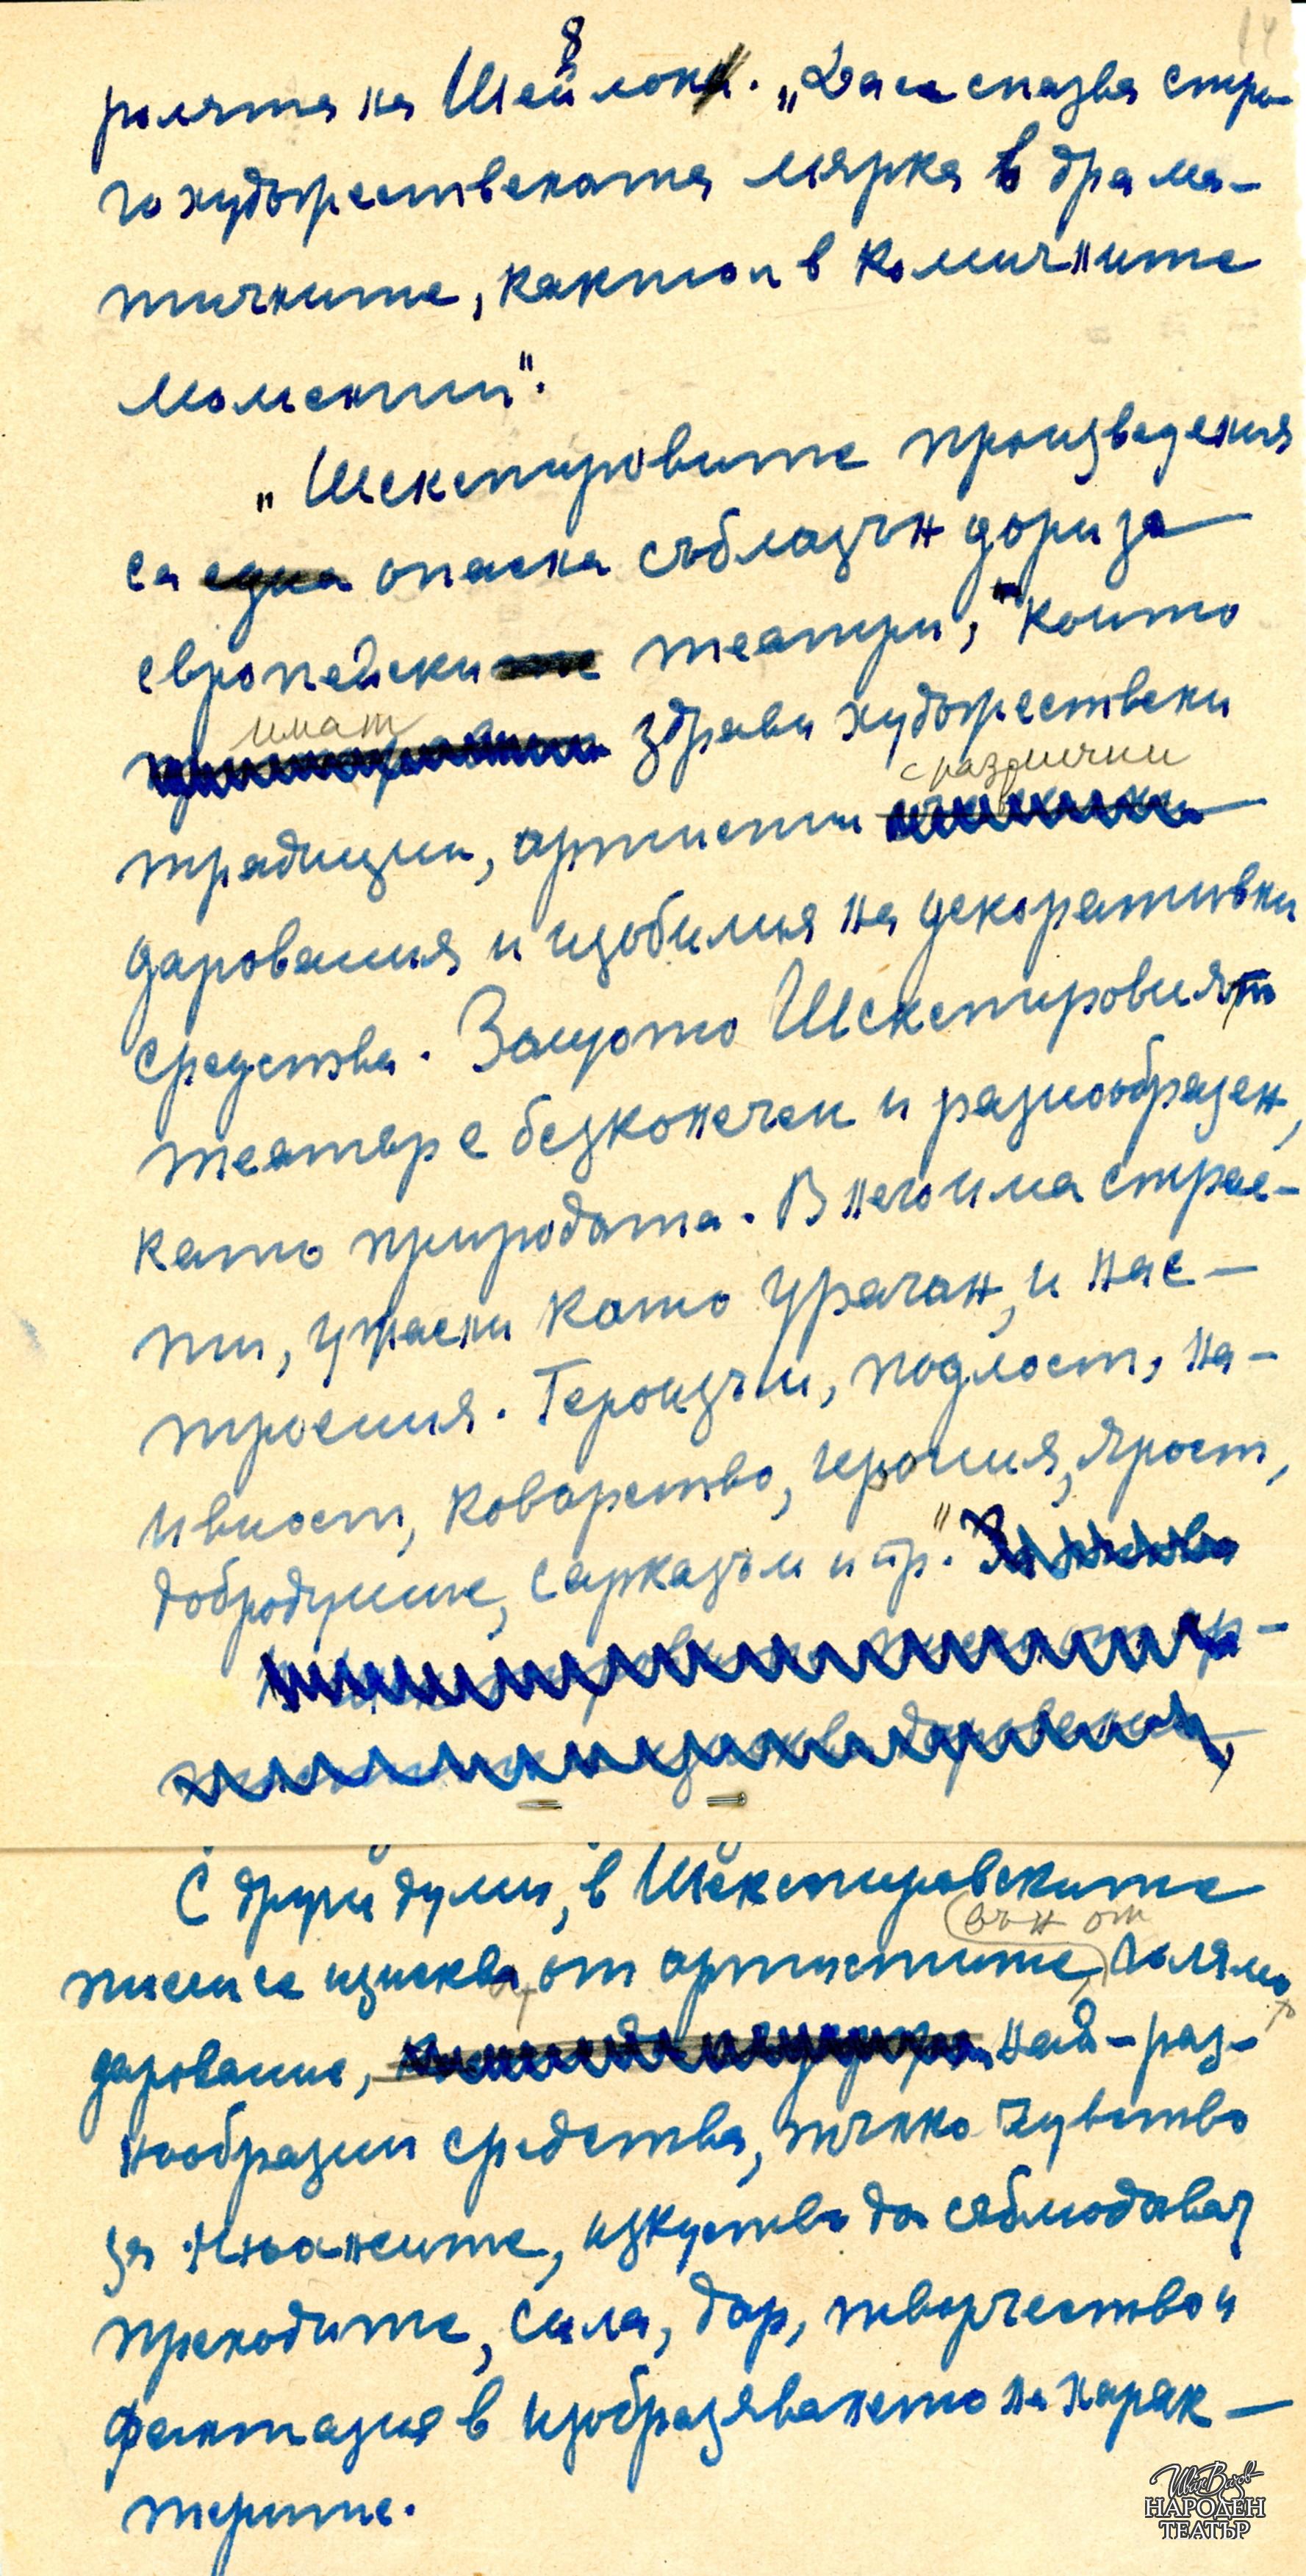 8
14
ролята на Шейлок. „Да се спазва стро-
го художествената мярка в драма-
тичните, както и в комичните
моменти".
„Шекспировите произведения
са една опасна съблазън дори за
европейски театри," които
имат здрави художествени
с различни
традиции, артисти
дарования и изобилия на декоративни
средства. Защото Шекспировият
театър е безконечен и разнообразен,
като природата. В него има страс-
ти, ужасни като ураган, и нас-
троения. Героизъм, подлост, на-
ивност, коварство, ирония, ярост,
добродушие, сарказъм и пр."
С други думи, в Шекспировските
вън от
пиеси се изисква от артистите, голямо
дарование, най-раз-
нообразни средства, тънко чувство
за нюансите, изкуство да съблюдават
преходите, сила, дар, творчество и
фантазия в изобразяването на харак-
терите.
Иван Вазов
НАРОДЕН
ТЕАТЪР